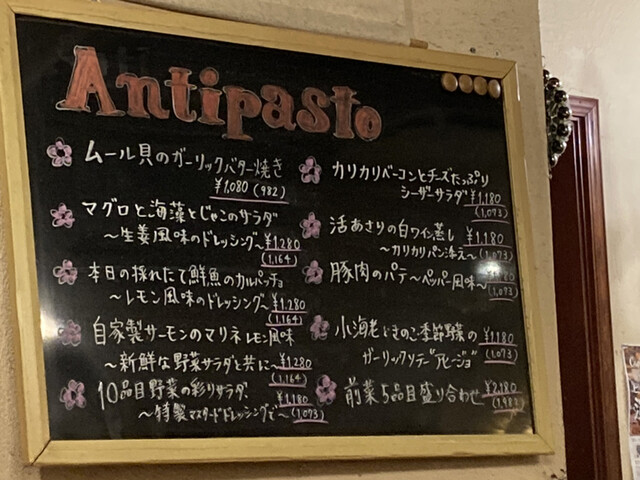 Antipasto
ムール貝のガーリックバター焼き
¥1,080 (982)
マグロと海藻とじゃこのサラダ
〜生姜風味のドレッシング〜¥1,280
(1,164)
本日の採れたて鮮魚のカルパッチョ
〜レモン風味のドレッシング〜¥1,280
(1,164)
自家製サーモンのマリネ レモン風味
〜新鮮な野菜サラダと共に〜¥1,280
(1,164)
10品目野菜の彩りサラダ ¥1,180
〜特製マスタードドレッシングで〜(1,073)
カリカリベーコンとチーズたっぷり
シーザーサラダ ¥1,180
(1,073)
活あさりの白ワイン蒸し ¥1,180
〜カリカリパン添え〜(1,073)
豚肉のパテ〜ペッパー風味〜
(1,073)
小海老ときのこ季節野菜の ¥1,180
ガーリックソテー"アヒージョ" (1,073)
前菜5品目盛り合わせ ¥2,180
(1,982)